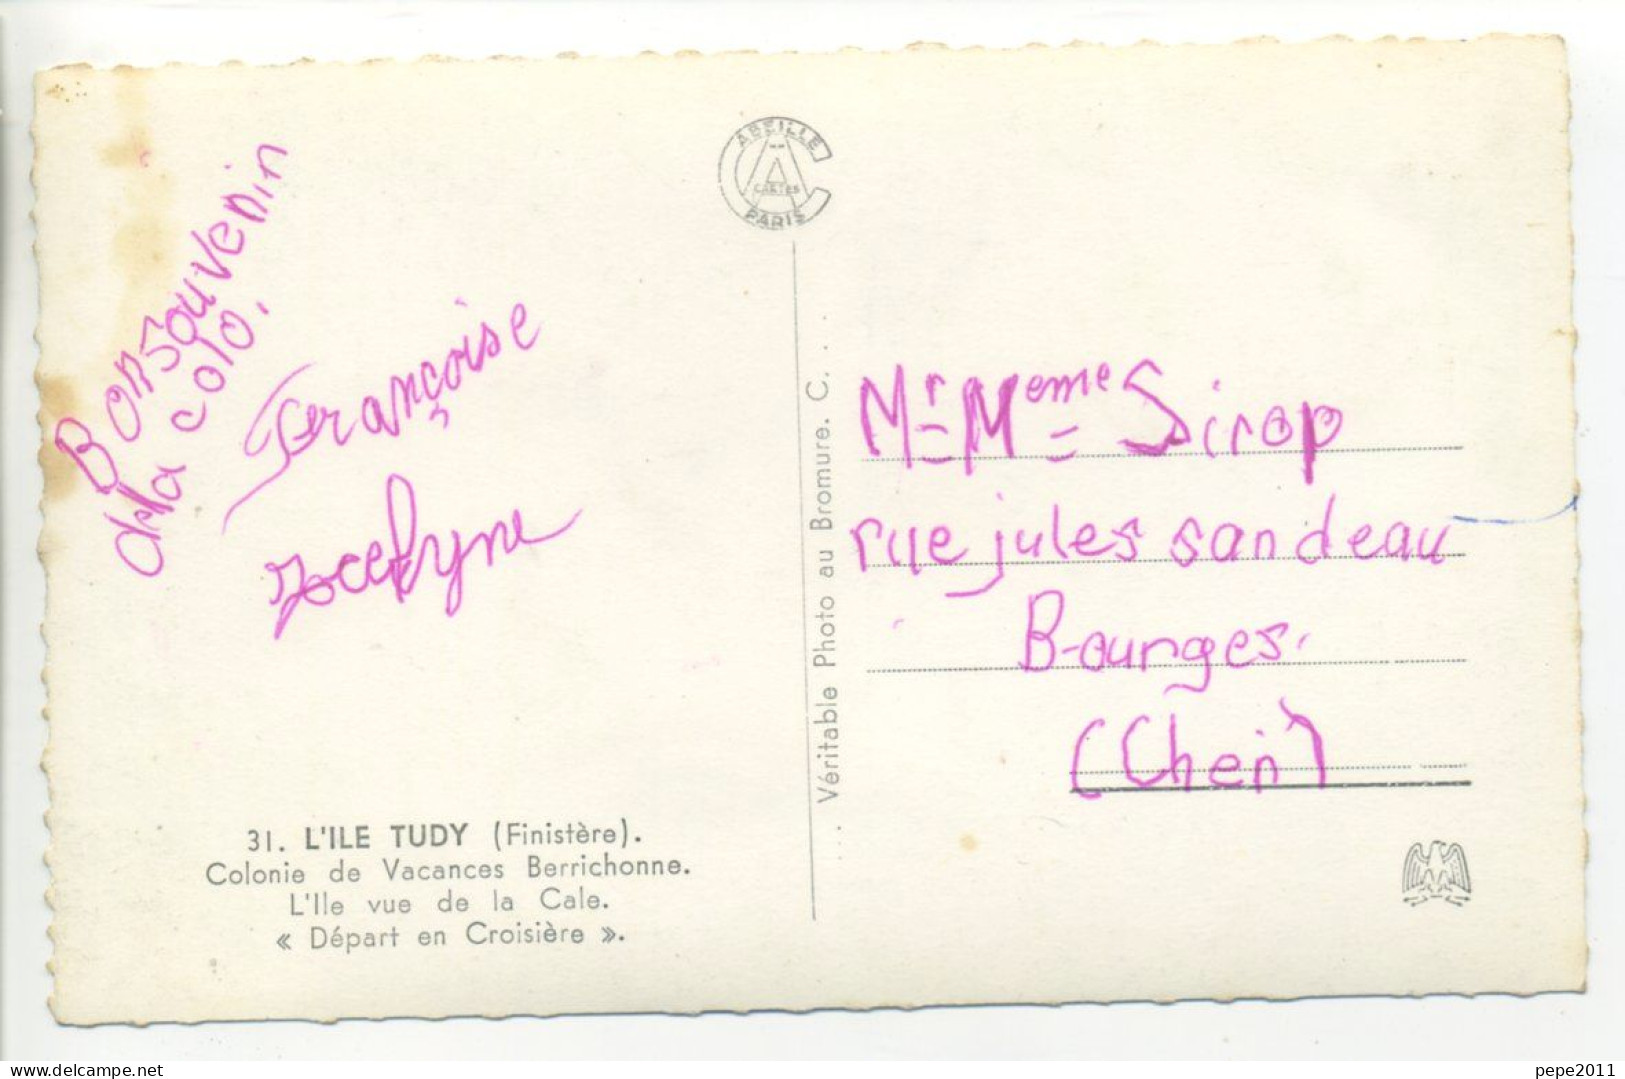 ABEILLE
CARTES
PARIS
Bon souvenir
de la colo.
Françoise
Jocelyne
Mr = Meme = Sirop
rue jules sandeau
Bourges.
(Cher)
Véritable Photo au Bromure. C. . .
31. L'ILE TUDY (Finistère).
Colonie de Vacances Berrichonne.
L'Ile vue de la Cale.
« Départ en Croisière ».
www.delcampe.net
pepe2011